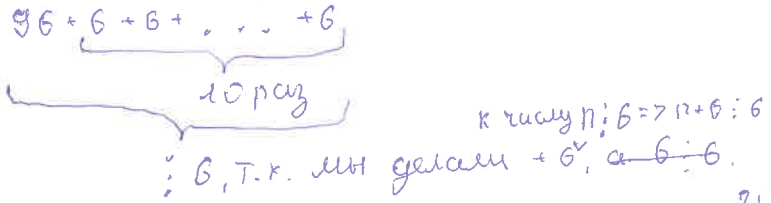 96 + 6 + 6 + . . . + 6
10 раз
к числу n ⋮ 6 => n+6 ⋮ 6
⋮ 6, т.к. мы делали + 6, а 6 ⋮ 6.